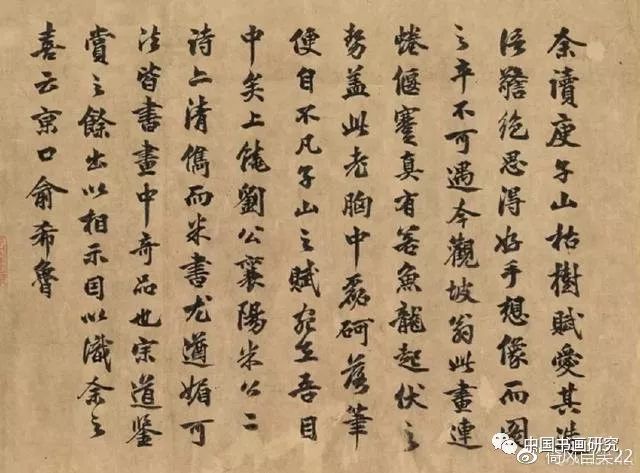 余讀庾子山枯樹賦愛其造
語警絶思得好手想像而圖
之卒不可遇今觀坡翁此畫連
蜷偃蹇真有若魚龍起伏之
勢蓋此老胸中磊砢落筆
便自不凡子山之賦宛在吾目
中矣上饒劉公襄陽米公二
詩亦清儁而米書尤遒媚可
法皆書畫中奇品也宗道鑒
賞之餘出以相示因以識余之
喜云京口俞希魯
中国书画研究
倚风自笑22